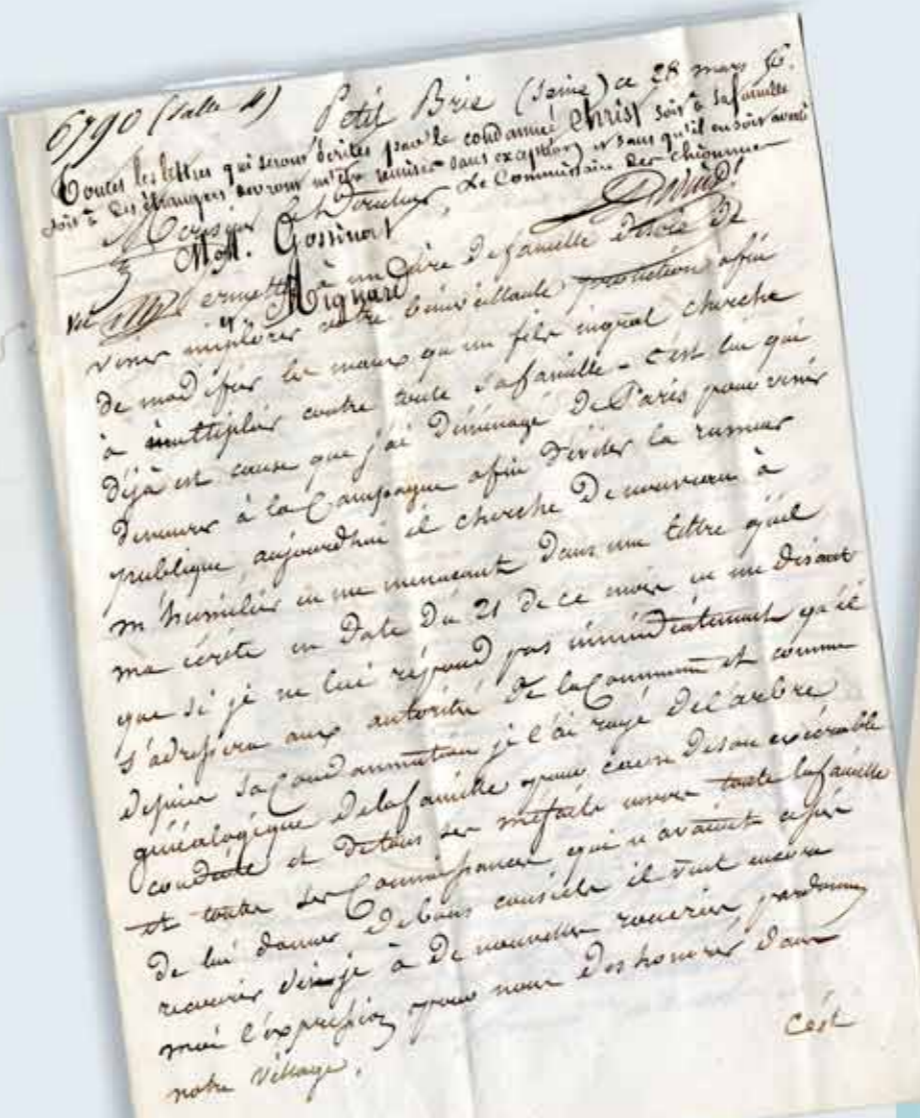 6790 (Salle 4) Petit Brie (Seine) ce 28 mars 56.
Toutes les lettres qui seront écrites par le condamné Christ soit à sa famille
soit à des étrangers devront m'être remises sans exception et sans qu'il en soit averti
Le Commissaire des chiourmes
Monsieur le Directeur,
MM. Gossinort
et Mignard
Vu
Permettez à un père de famille de
venir implorer votre bienveillante protection afin
de modifier les maux qu'un fils ingrat cherche
à multiplier contre toute sa famille - c'est lui qui
déjà est cause que j'ai déménagé de Paris pour venir
demeurer à la Campagne afin d'éviter la rumeur
publique, aujourd'hui il cherche de nouveau à
m'humilier en me menaçant dans une lettre qu'il
ma écrite en date du 21 de ce mois en me disant
que si je ne lui répond pas immédiatement qu'il
s'adressera aux autorité de la Commune et comme
depuis sa Condamnation je l'ai rayé de l'arbre
généalogique de la famille pour cause de son exécrable
conduite et de tous ses méfaits envers toute la famille
et toute ses Connaissances qui n'avaient cessé
de lui donner de bons conseils il veut encore
recourir dis-je à de nouvelles roueries, pardonnez
moi l'expression pour nous deshonorer dans
notre village.
C'est